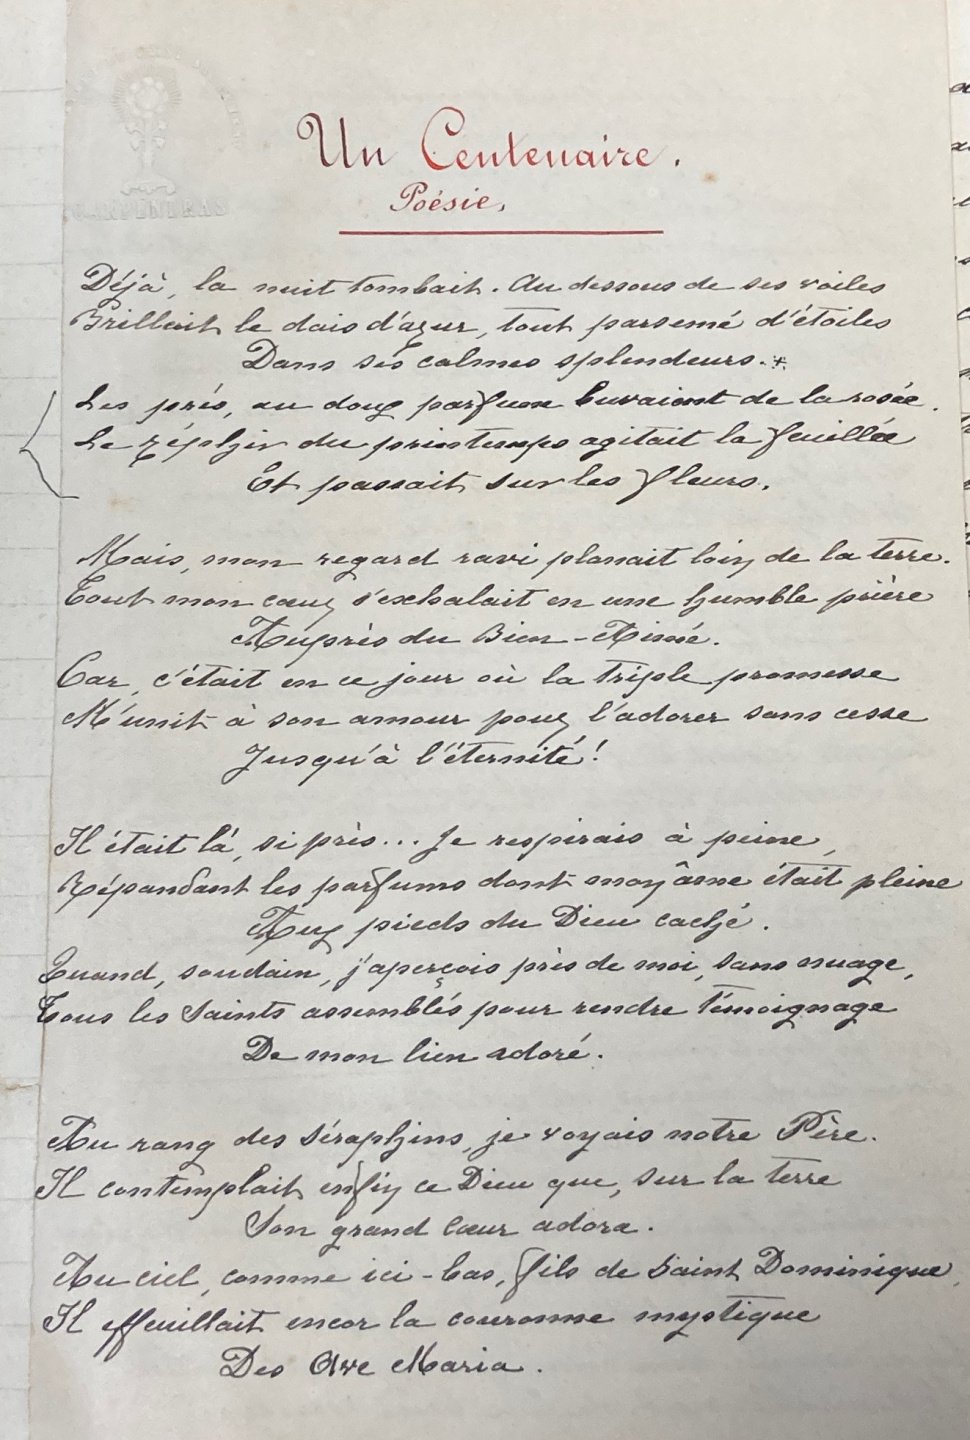 CARPENTRAS
Un Centenaire.
Poésie.
Déjà, la nuit tombait. Au dessous de ses voiles
Brillait le dais d'azur, tout parsemé d'étoiles
Dans ses calmes splendeurs.
Les prés, au doux parfum buvaient de la rosée.
Le zéphir du printemps agitait la feuillée
Et passait sur les fleurs.
Mais, mon regard ravi planait loin de la terre.
Tout mon cœur s'exhalait en une humble prière
Auprès du Bien-Aimé.
Car, c'était en ce jour où la triple promesse
M'unit à son amour pour l'adorer sans cesse
Jusqu'à l'éternité!
Il était là, si près... Je respirais à peine,
Répandant les parfums dont mon âme était pleine
Aux pieds du Dieu caché.
Quand, soudain, j'aperçois près de moi, sans nuage,
Tous les Saints assemblés pour rendre témoignage
De mon lien adoré.
Au rang des séraphins, je voyais notre Père.
Il contemplait enfin ce Dieu que, sur la terre
Son grand cœur adora.
Au ciel, comme ici-bas, fils de Saint Dominique,
Il effeuillait encor la couronne mystique
Des Ave Maria.